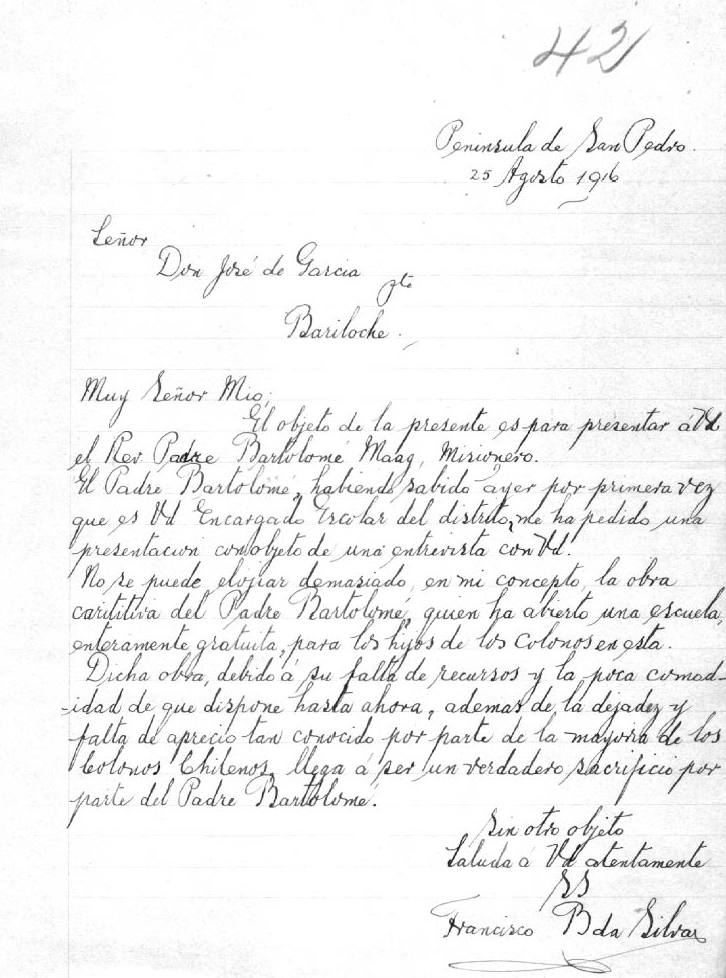 42
Peninsula de San Pedro.
25 Agosto 1916
Señor
Don José de Garcia
pte
Bariloche.
Muy Señor Mio;
El objeto de la presente es para presentar á Vd
el Rev. Padre Bartolomé Maag, Misionero.
El Padre Bartolomé, habiendo sabido ayer por primera vez
que es Vd Encargado Escolar del distrito, me ha pedido una
presentacion con objeto de una entrevista con Vd.
No se puede elojiar demasiado, en mi concepto, la obra
carititiva del Padre Bartolomé, quien ha abierto una escuela,
enteramente gratuita, para los hijos de los Colonos en esta.
Dicha obra, debido á su falta de recursos y la poca comod-
-idad de que dispone hasta ahora, ademas de la dejadez y
falta de aprecio tan conocido por parte de la mayoria de los
Colonos Chilenos, llega á ser un verdadero sacrificio por
parte del Padre Bartolomé.
Sin otro objeto
Saluda á Vd atentamente
SS
Francisco B da Silva